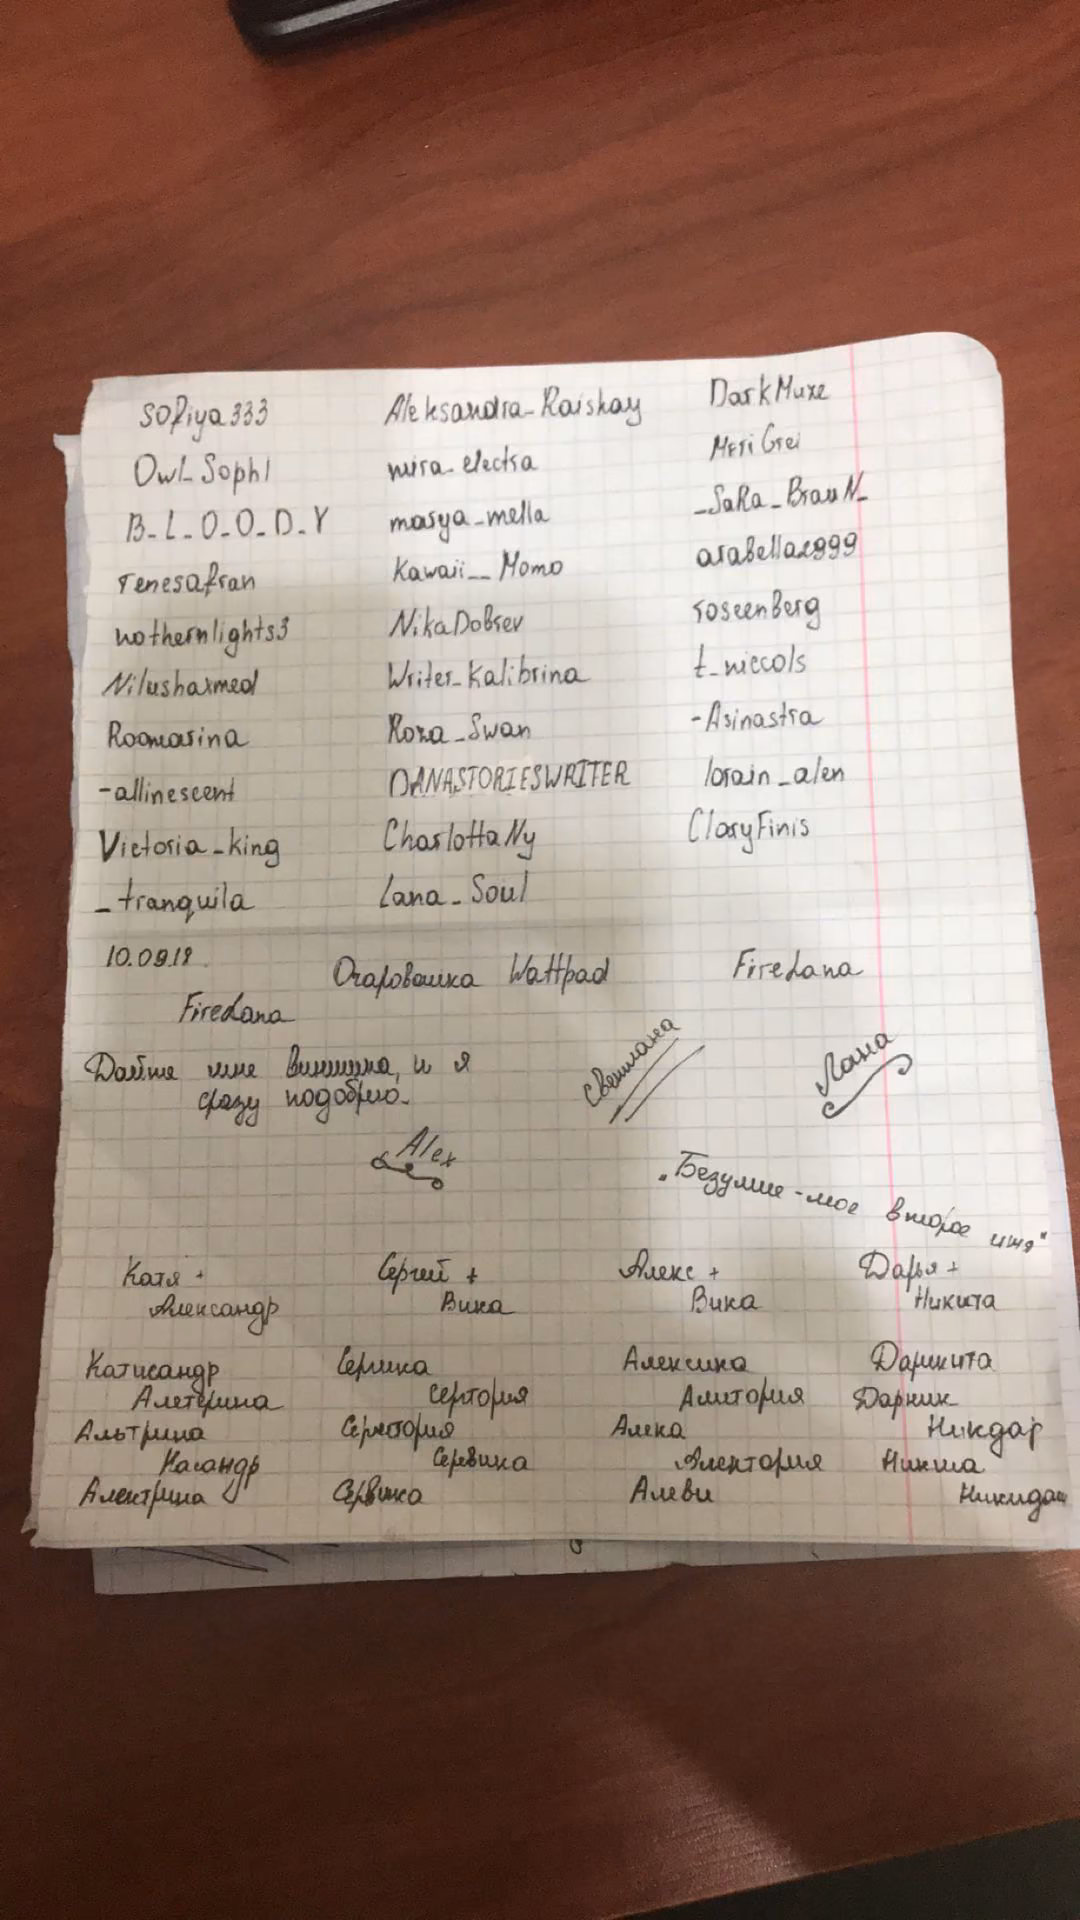 Sofiya333 Aleksandra_Raiskay DarkMuze
Owl_Sophi mira_electra MeriGrei
B_L_O_O_D_Y marya_mella _SaRa_BrauN_
Tenesafran Kawaii__Momo arabella2999
nothernlights3 NikaDobrev roseenberg
Nilushaxmed Writer_Kalibrina t_niccols
Roomarina Roza_Swan -Asinastra
-allinescent DANASTORIESWRITER lorain_alen
Victoria_king CharlottaNy ClaryFinis
_tranquila Lana_Soul
10.09.18 Очаровашка Wattpad FireLana
FireLana
Дайте мне винишка, и я Светлана Лана
сразу подобрею.
Alex
„Безумие - мое второе имя"
Катя + Сергей + Алекс + Дарья +
Александр Вика Вика Никита
Катисандр Сергика Алексика Дарикита
Алетерина Сергория Алитория Дарник
Альтрина Алека Никдар
Касандр Серевика Алектория
Алектрина Сервика Алеви Никидаш